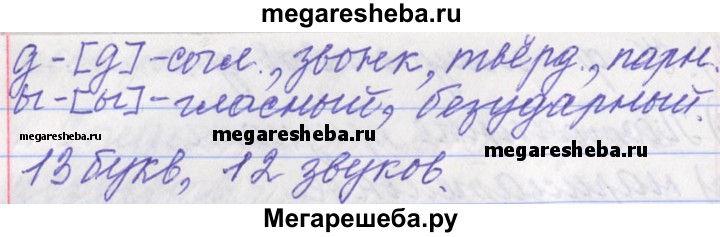 megaresheba.ru
д-[д]-согл., звонк, твёрд., парн.
ы-[ы]-гласный, безударный.
megaresheba.ru megaresheba.ru megaresheba.ru
13 букв, 12 звуков.
Мегарешеба.ру